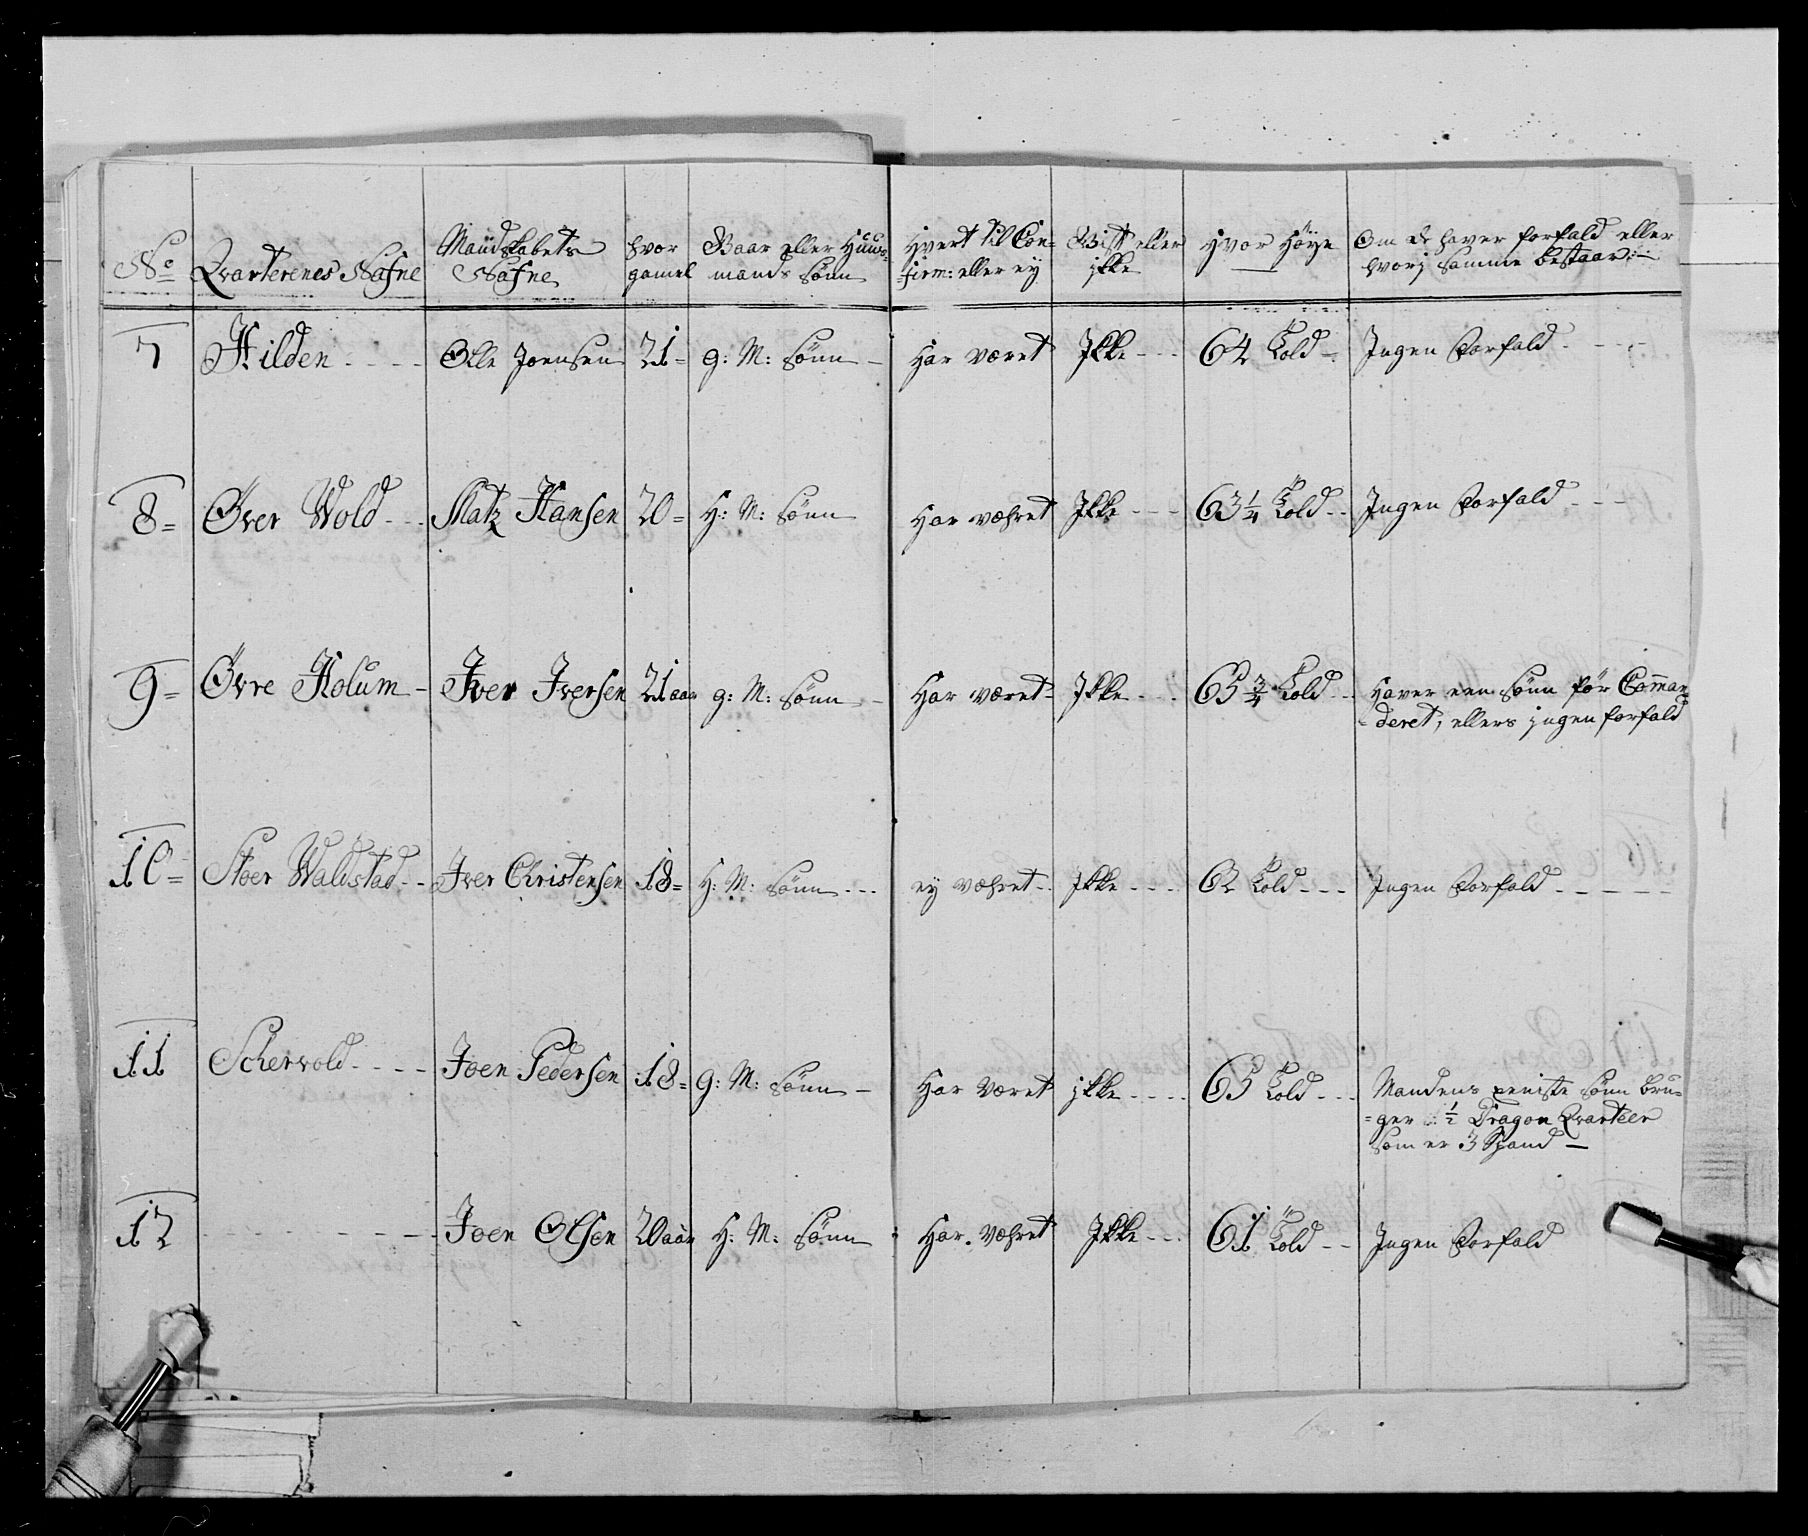 No Qvarterenes Nafne Mandskabets Nafne hvor gamel Baar eller Huus-mands Sønn Hvert til Con-firm: eller ey Gift eller ikke Hvor Høye Om de haver forfald eller hvorj samme bestaar:
7 Hilden Olle Joensen 21 g: M: Sønn Har været Ikke 64 Told Ingen Forfald
8 Øver Wold Matz Hansen 20 H: M: Sønn Har væhret Ikke 63 1/4 Told Ingen Forfald
9 Øvre Holum Iver Iversen 21 aar g: M: Sønn Har været Ikke 65 3/4 Told Haver een Sønn før Comman-
deret, ellers jngen forfald
10 Stoer Waldstad Iver Christensen 18 H: M: Sønn ey væhret Ikke 62 Told Ingen Forfald
11 Schervold Joen Pedersen 18 g: M: Sønn Har været ikke 65 Told Mandens eeniste Sønn bru-
ger 1/2 Dragon Qvarteer
som er 3 Spand
12 Joen Olsen 20 aar H: M: Sønn Har væhret Ikke 61 Told Ingen Forfald